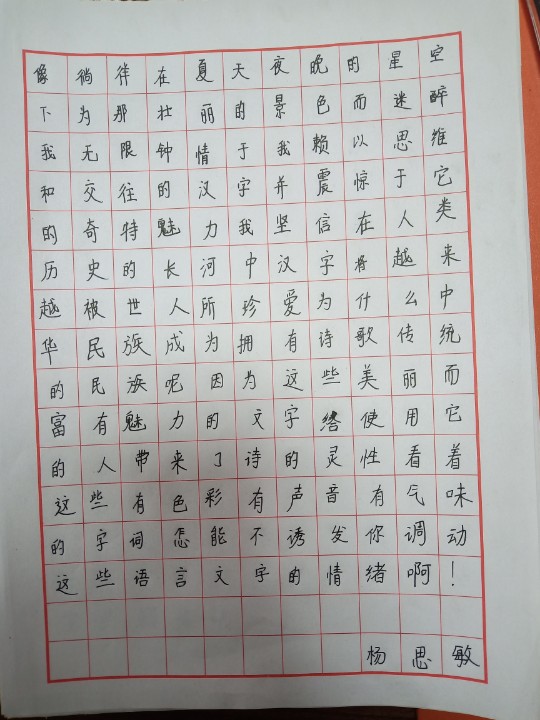 像徜徉在夏天夜晚的星空
下为那壮丽的景色而迷醉
我无限钟情于我赖以思维
和交往的汉字并震惊于它
的奇特魅力我坚信在人类
历史的长河中汉字将越来
越被世人所珍爱为什么中
华民族成为拥有诗歌传统
的民族呢因为这些美丽而
富有魅力的文字给使用它
的人带来了诗的灵性看着
这些有色彩有声音有气味
的字词怎能不诱发你调动
这些语言文字的情绪啊！
杨思敏